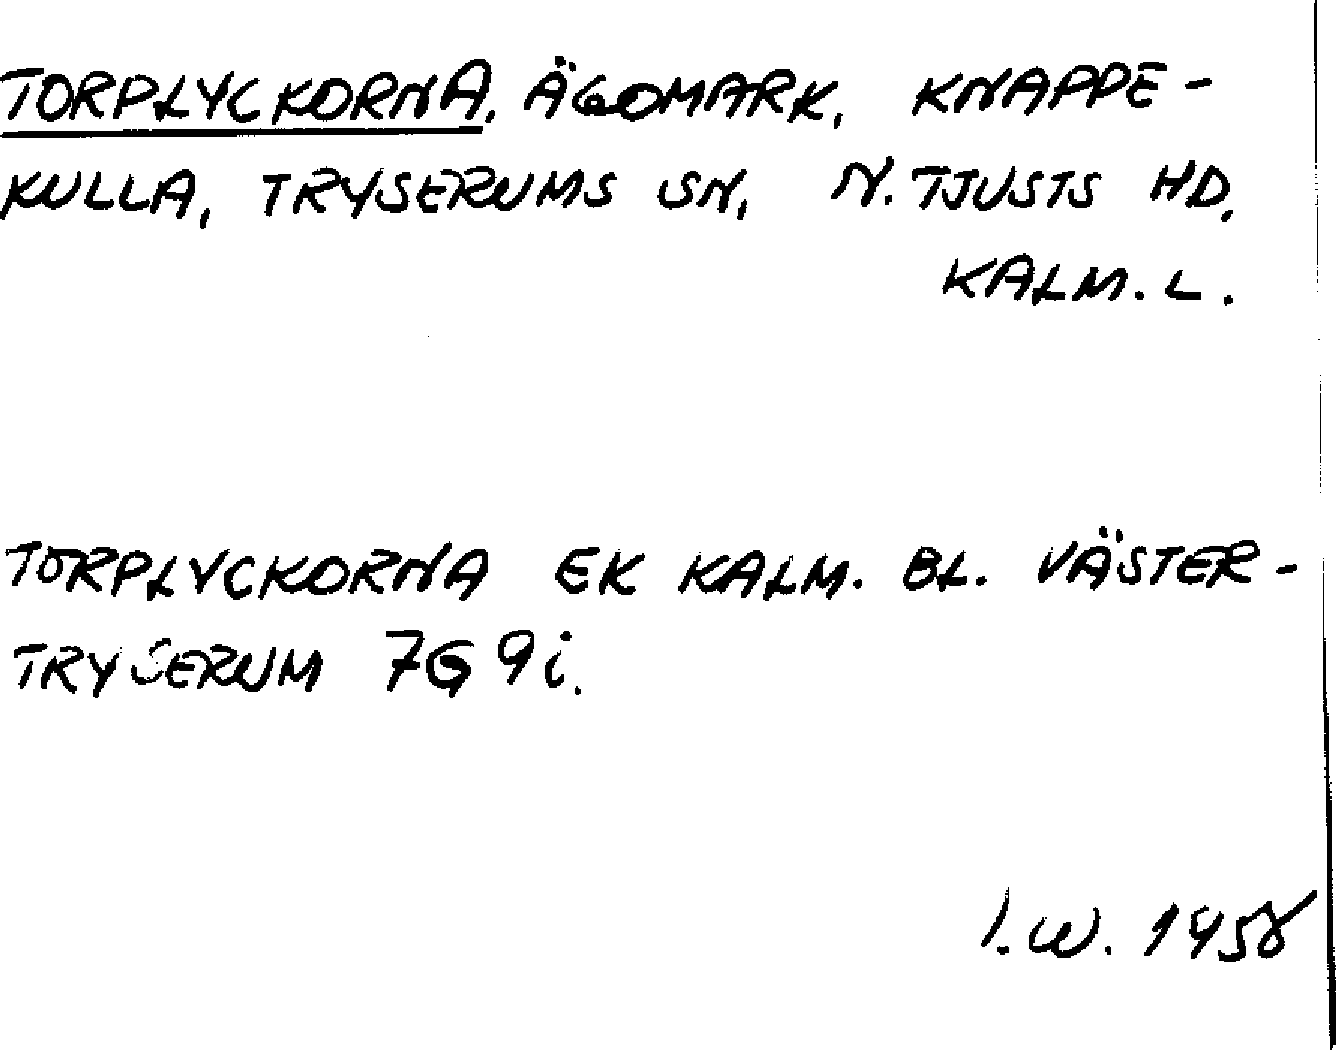 TORPLYCKORNA, ÄGOMARK, KNAPPE-
KULLA, TRYSERUMS SN, N. TJUSTS HD.
KALM. L.
TORPLYCKORNA EK KALM. BL. VÄSTER-
TRYSERUM 7G 9i.
I.W. 1958